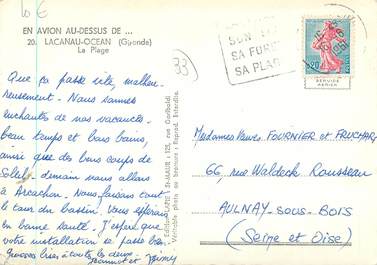 10 €
EN AVION AU-DESSUS DE ...
20. LACANAU-OCEAN (Gironde)
La Plage
33
SON
SA FORÊT
SA PLAGE
0,20
SERVICE
AERIEN
Que ça passe vite, malheu-
reusement. Nous sommes
enchantés de nos vacances.
beau temps et bons bains,
ainsi que des bons coups de
Soleil. demain nous allons
à Arcachon. Nous faisons tout
le tour du bassin. Vous espérons
en bonne santé. J'espère que
votre installation se passe bien.
Grosses bises à toutes les deux.
Edition LAPIE - St-MAUR : 125, rue Garibaldi
Véritable photo au bromure : Reprod. Interdite.
Mesdames Veuves FOURNIER et FRUCHART
66, rue Waldeck Rousseau
AULNAY-SOUS-BOIS
(Seine et Oise)